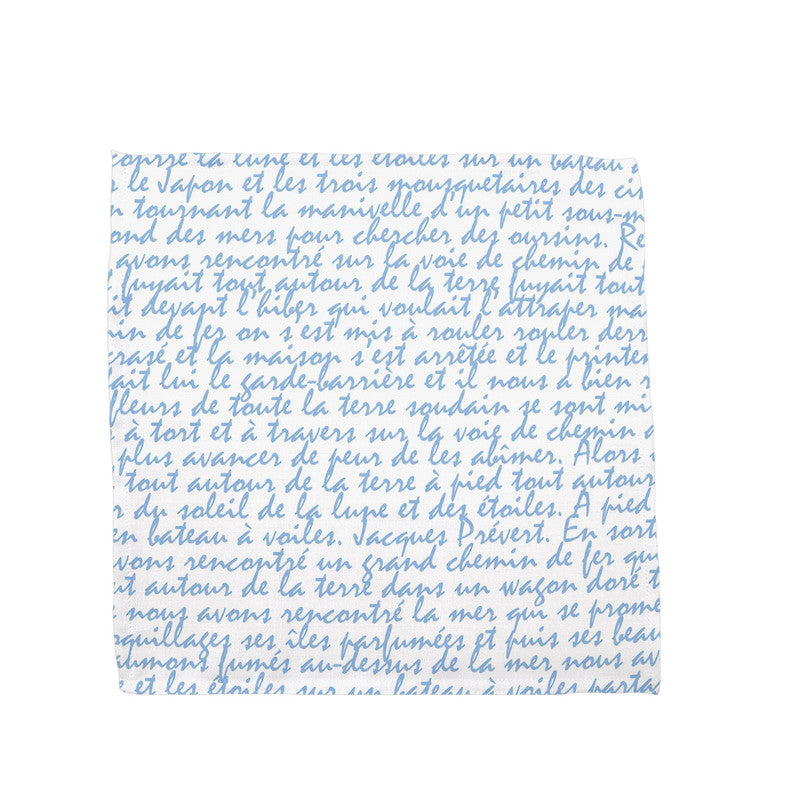 la lune et les étoiles sur un bateau
le Japon et les trois mousquetaires des
tournant la manivelle d'un petit sous-m
ond des mers pour chercher des oursins. Re
avons rencontré sur la voie de chemin de
fuyait tout autour de la terre fuyait tout
it devant l'hiver qui voulait l'attraper ma
in de fer on s'est mis à rouler rouler derr
crasé et la maison s'est arrêtée et le printem
ait lui le garde-barrière et il nous a bien
fleurs de toute la terre soudain se sont mi
à tort et à travers sur la voie de chemin
plus avancer de peur de les abîmer. Alors
tout autour de la terre à pied tout autour
r du soleil de la lune et des étoiles. A pied
en bateau à voiles. Jacques Prévert. En sort
vons rencontré un grand chemin de fer qui
ut autour de la terre dans un wagon doré t
nous avons rencontré la mer qui se prome
oquillages ses îles parfumées et puis ses beau
aumons fumés au-dessus de la mer nous av
et les étoiles sur un bateau à voiles parta